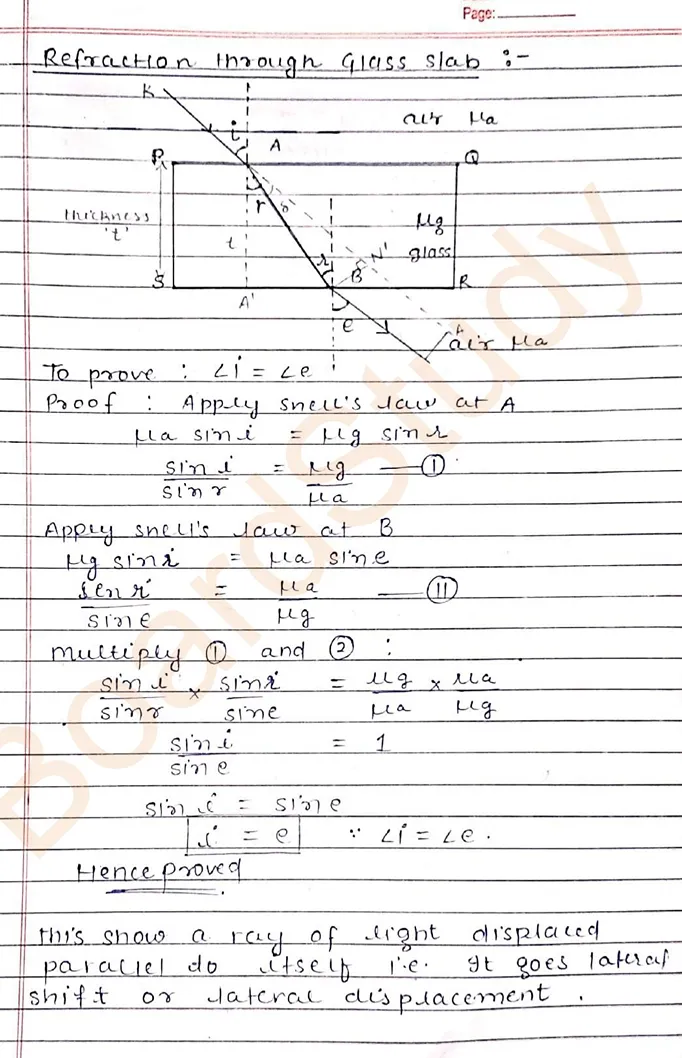 Page:
Refraction through Glass slab :-
K
air μa
i A
P Q
r δ
thickness 't'
t
μg
glass
r
N'
S A' B R
e
air μa
To prove : ∠i = ∠e
Proof : Apply snell's law at A
μa sin i = μg sin r
sin i / sin r = μg / μa — (I)
Apply snell's law at B
μg sin r = μa sin e
sin r / sin e = μa / μg — (II)
multiply ① and ② :
sin i / sin r × sin r / sin e = μg / μa × μa / μg
sin i / sin e = 1
sin i = sin e
i = e ∵ ∠i = ∠e .
Hence proved .
this show a ray of light displaced
parallel do itself i.e. It goes lateral
shift or lateral displacement .
BoardStudy